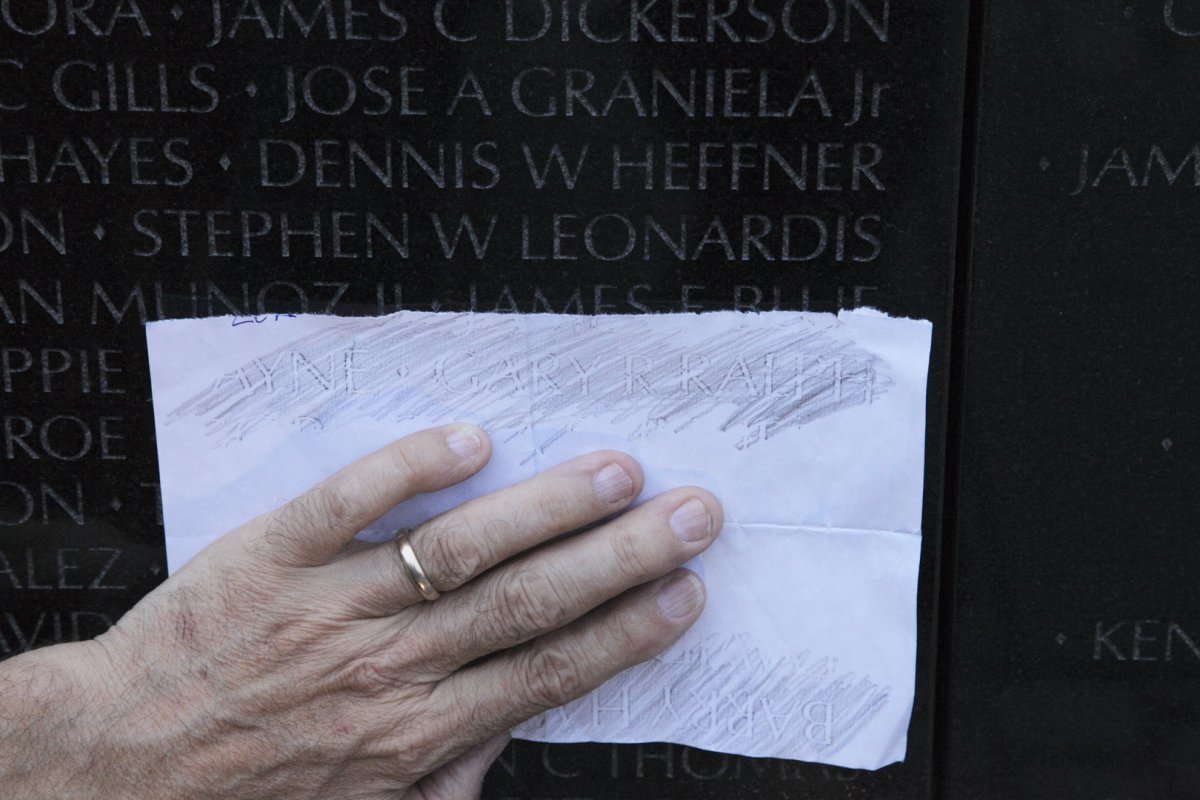 ORA ⬩ JAMES C DICKERSON
C GILLS ⬩ JOSE A GRANIELA Jr
HAYES ⬩ DENNIS W HEFFNER JAM
ON ⬩ STEPHEN W LEONARDIS
AN MUNOZ JAMES E
PPIE AYNE ⬩ GARY R RALPH
ROE
ON ⬩ T
ALEZ
DAVID KEN
BARRY
N C THOMAS